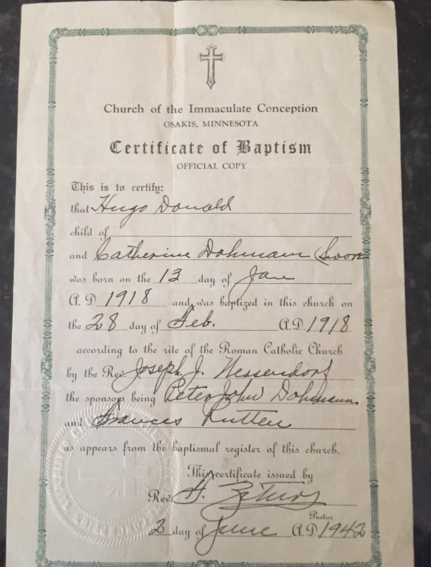 Church of the Immaculate Conception
OSAKIS, MINNESOTA
Certificate of Baptism
OFFICIAL COPY
This is to certify:
that Hugo Donald
child of
and Catherine Dohmann
was born on the 13 day of Jan
A. D. 1918 and was baptized in this church on
the 28 day of Feb. A.D. 1918
according to the rite of the Roman Catholic Church
by the Rev. Joseph J.
the sponsors being Peter John Dohmann
and Frances Rutten
as appears from the baptismal register of this church.
This certificate issued by
Rev.
Pastor
2 day of June A.D. 1942